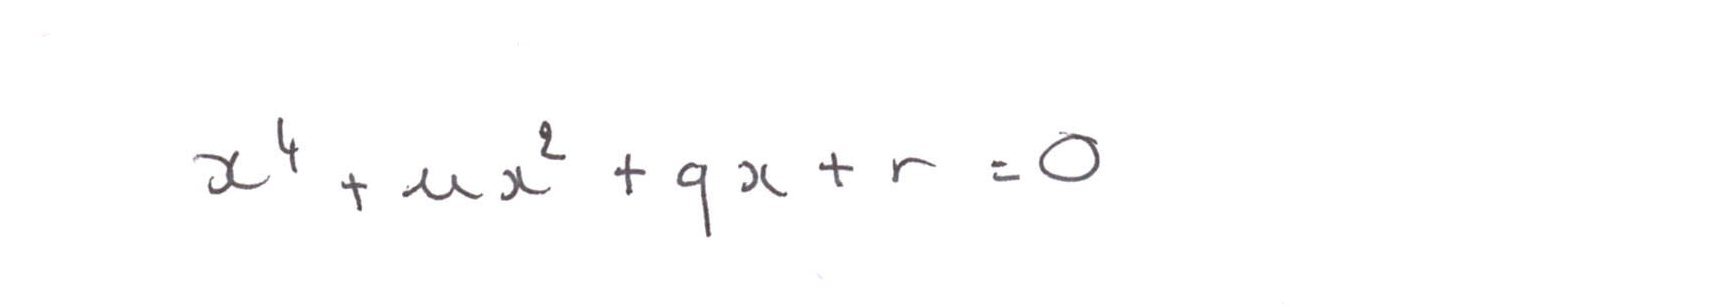 x⁴ + ux² + qx + r = 0